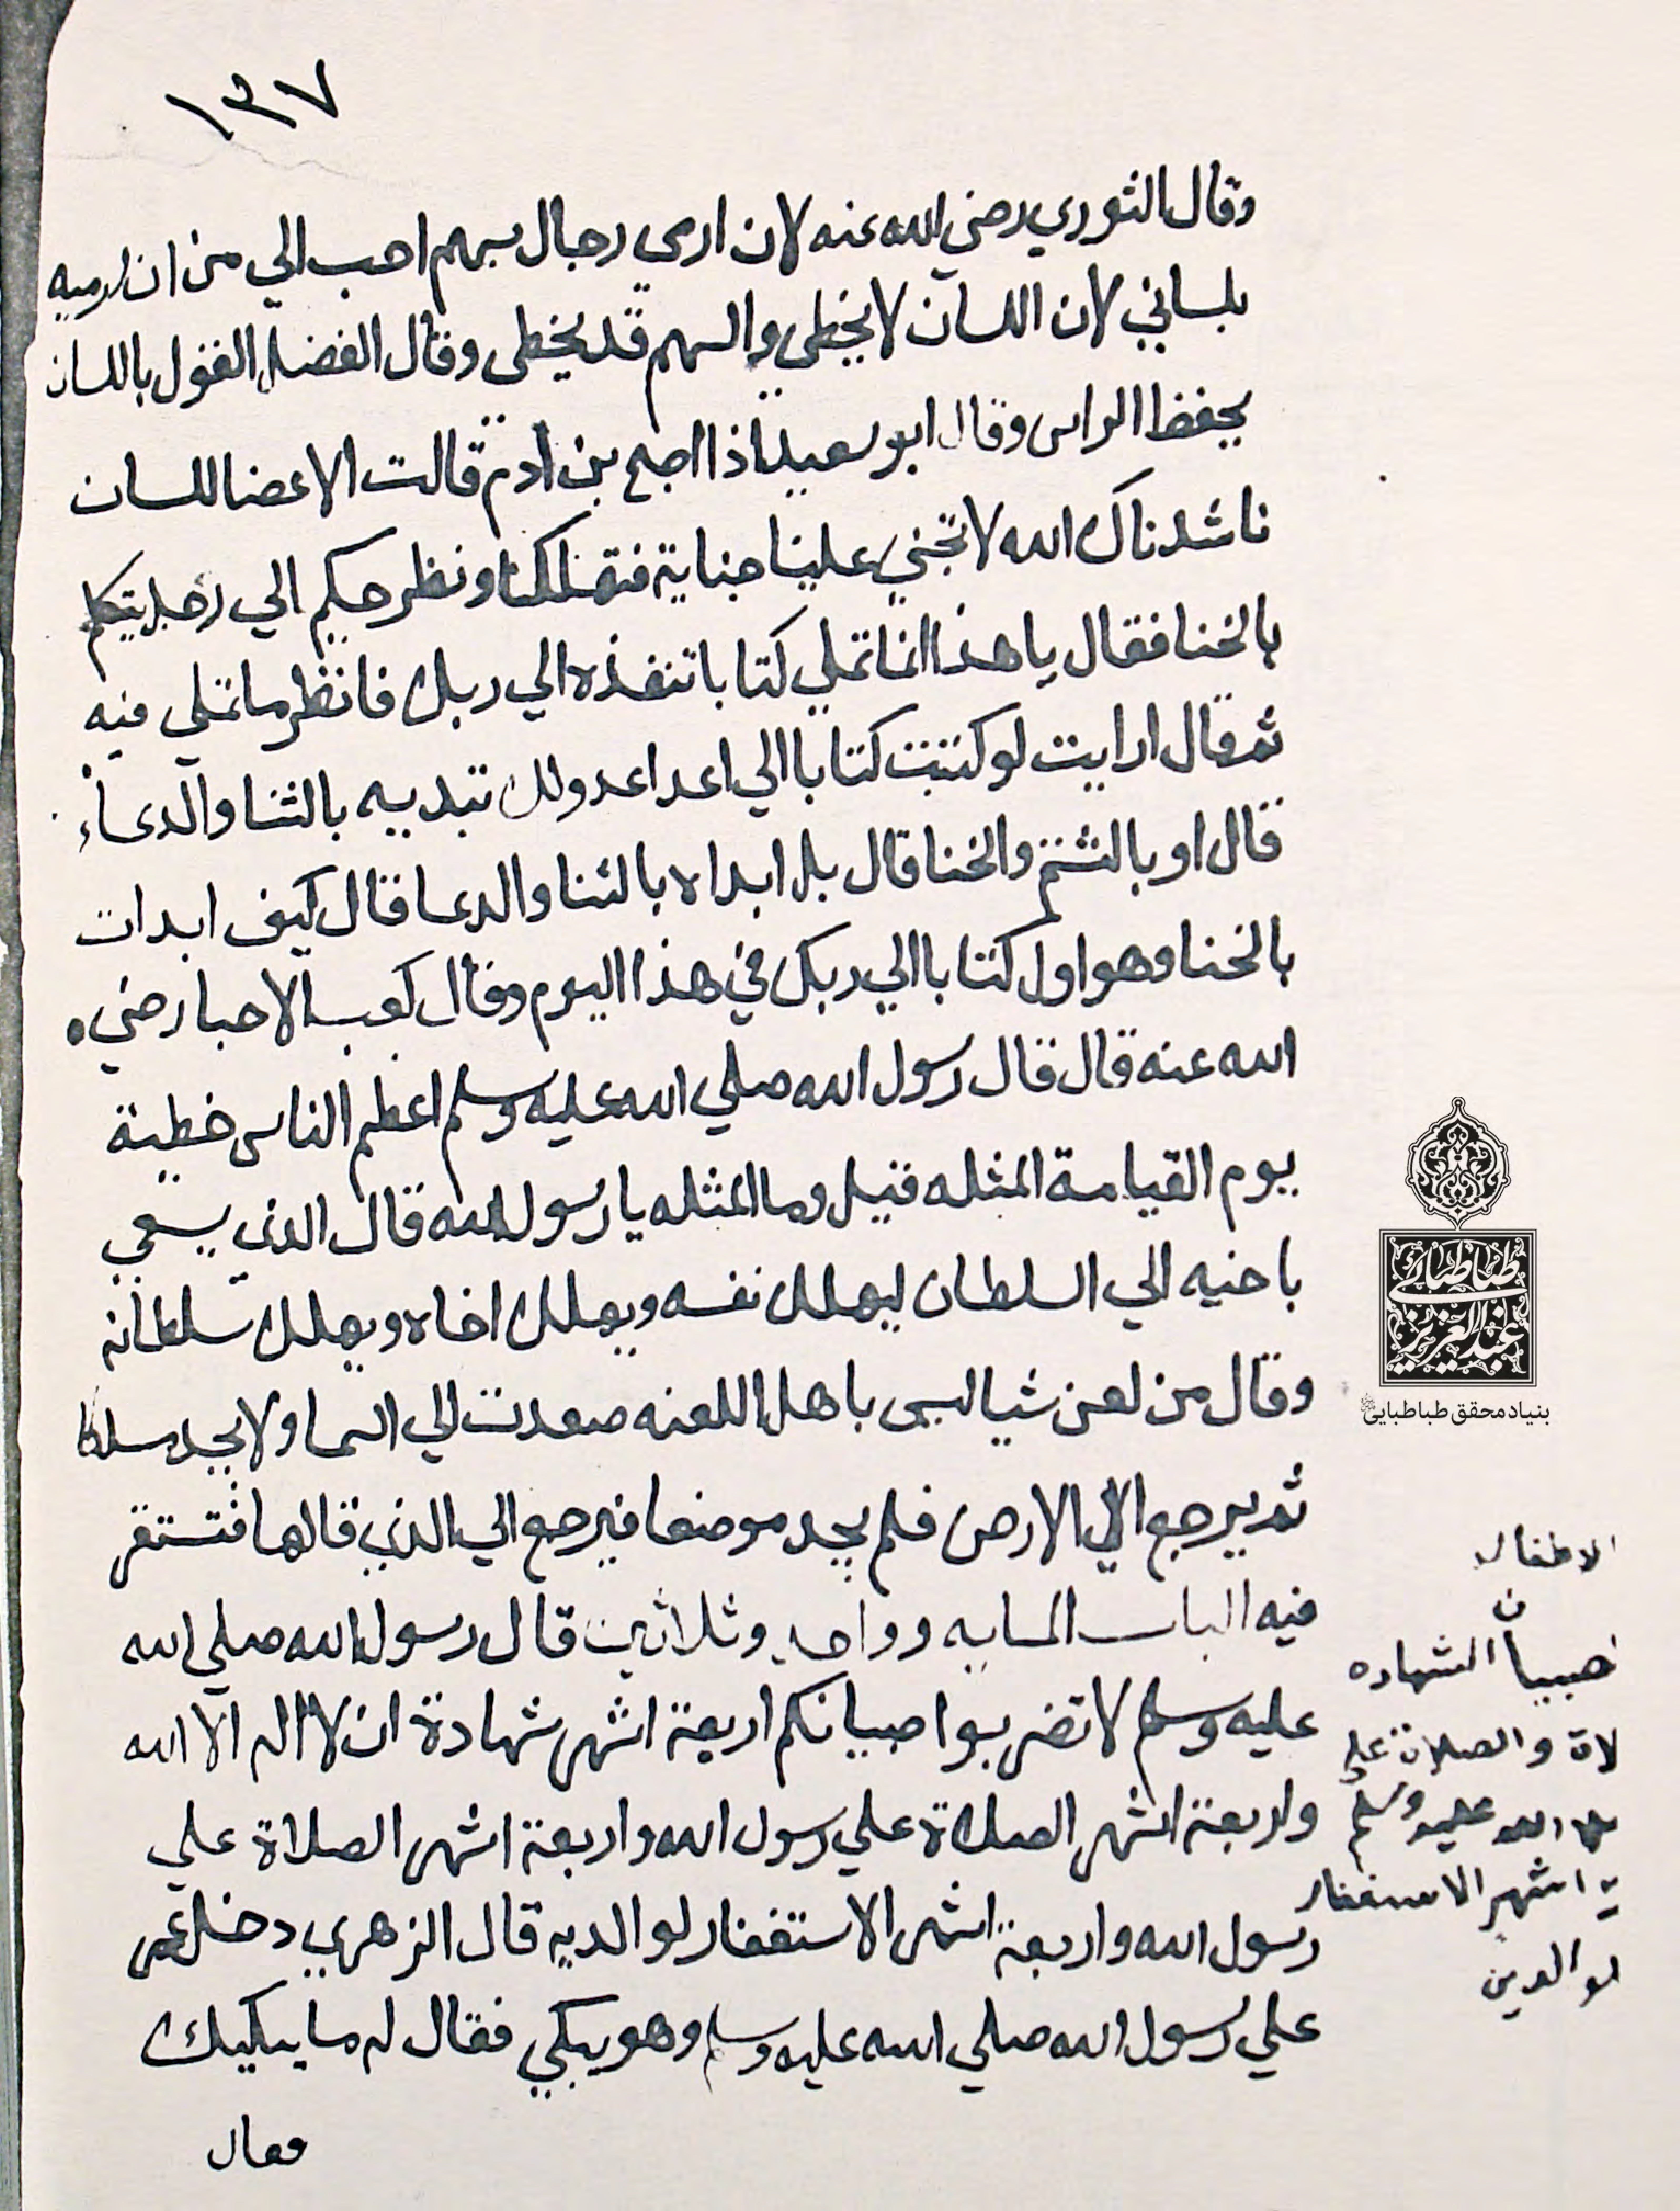 ١٣٧
وقال الثوري رضي الله عنه لان ارمي رجال بسهم احب الي من ان ارميه
بلساني لان اللسان لا يخطى والسهم قد يخطى وقال الفضيل القول باللسان
يحفظ الراس وقال ابو سعيد اذا اصبح بن ادم قالت الاعضا للسان
ناشدناك الله لا تجني علينا جناية فتهلكنا ونظر حكيم الي رجل يتكلم
بالخنا فقال يا هذا انما تملي كتابا تنفذه الي ربك فانظر ما تملي فيه
ثم قال ارايت لو كتبت كتابا الي اعدا عدو لك تبديه بالثنا والدعاء
قال او بالشتم والخنا قال بل ابداه بالثنا والدعا قال كيف ابدات
بالخنا وهو اول كتابا الي ربك في هذا اليوم وقال كعب الاحبار رضي
الله عنه قال قال رسول الله صلي الله عليه وسلم اعظم الناس خطية
يوم القيامة المثله قيل وما المثله يا رسول الله قال الذي يسعي
باخيه الي السلطان ليهلك نفسه ويهلك اخاه ويهلك سلطانه
وقال من لعن شيا ليس باهل اللعنه صعدت الي السما ولا يجد مسلكا
ثم يرجع الي الارض فلم يجد موضعا فيرجع الي الذي قالها فتستقر
فيه الباب المايه وواحد وثلاثين قال رسول الله صلي الله
عليه وسلم لا تضربوا صبيانكم اربعة اشهر شهادة ان لا اله الا الله
واربعة اشهر الصلاة علي رسول الله واربعة اشهر الصلاة علي
رسول الله واربعة اشهر الاستغفار لوالديه قال الزهري دخل عمر
علي رسول الله صلي الله عليه وسلم وهو يبكي فقال له ما يبكيك
فقال
الاطفال
الشهاده
والصلاة علي
الله عليه وسلم
اشهر الاستغفار
لوالدين
طباطبائي
عبدالعزيز
بنیاد محقق طباطبایی